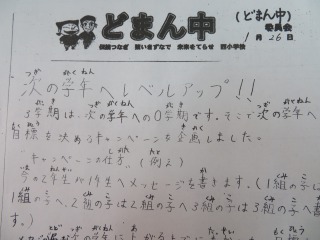 どまん中
(どまん中)
委員会
1月26日
伝統つなぎ 願いきずなで 未来をてらせ 西小学校
次の学年へレベルアップ!!
3学期は、次の学年への0学期です。そこで次の学年へ
目標を決めるキャンペーンを企画しました。
キャンペーンの仕方 (例2)
今の2年生が1年生へメッセージを書きます。(1組の子は
1組の子へ、2組の子は2組の子へ、3組の子は3組の子へ書き
ます。)